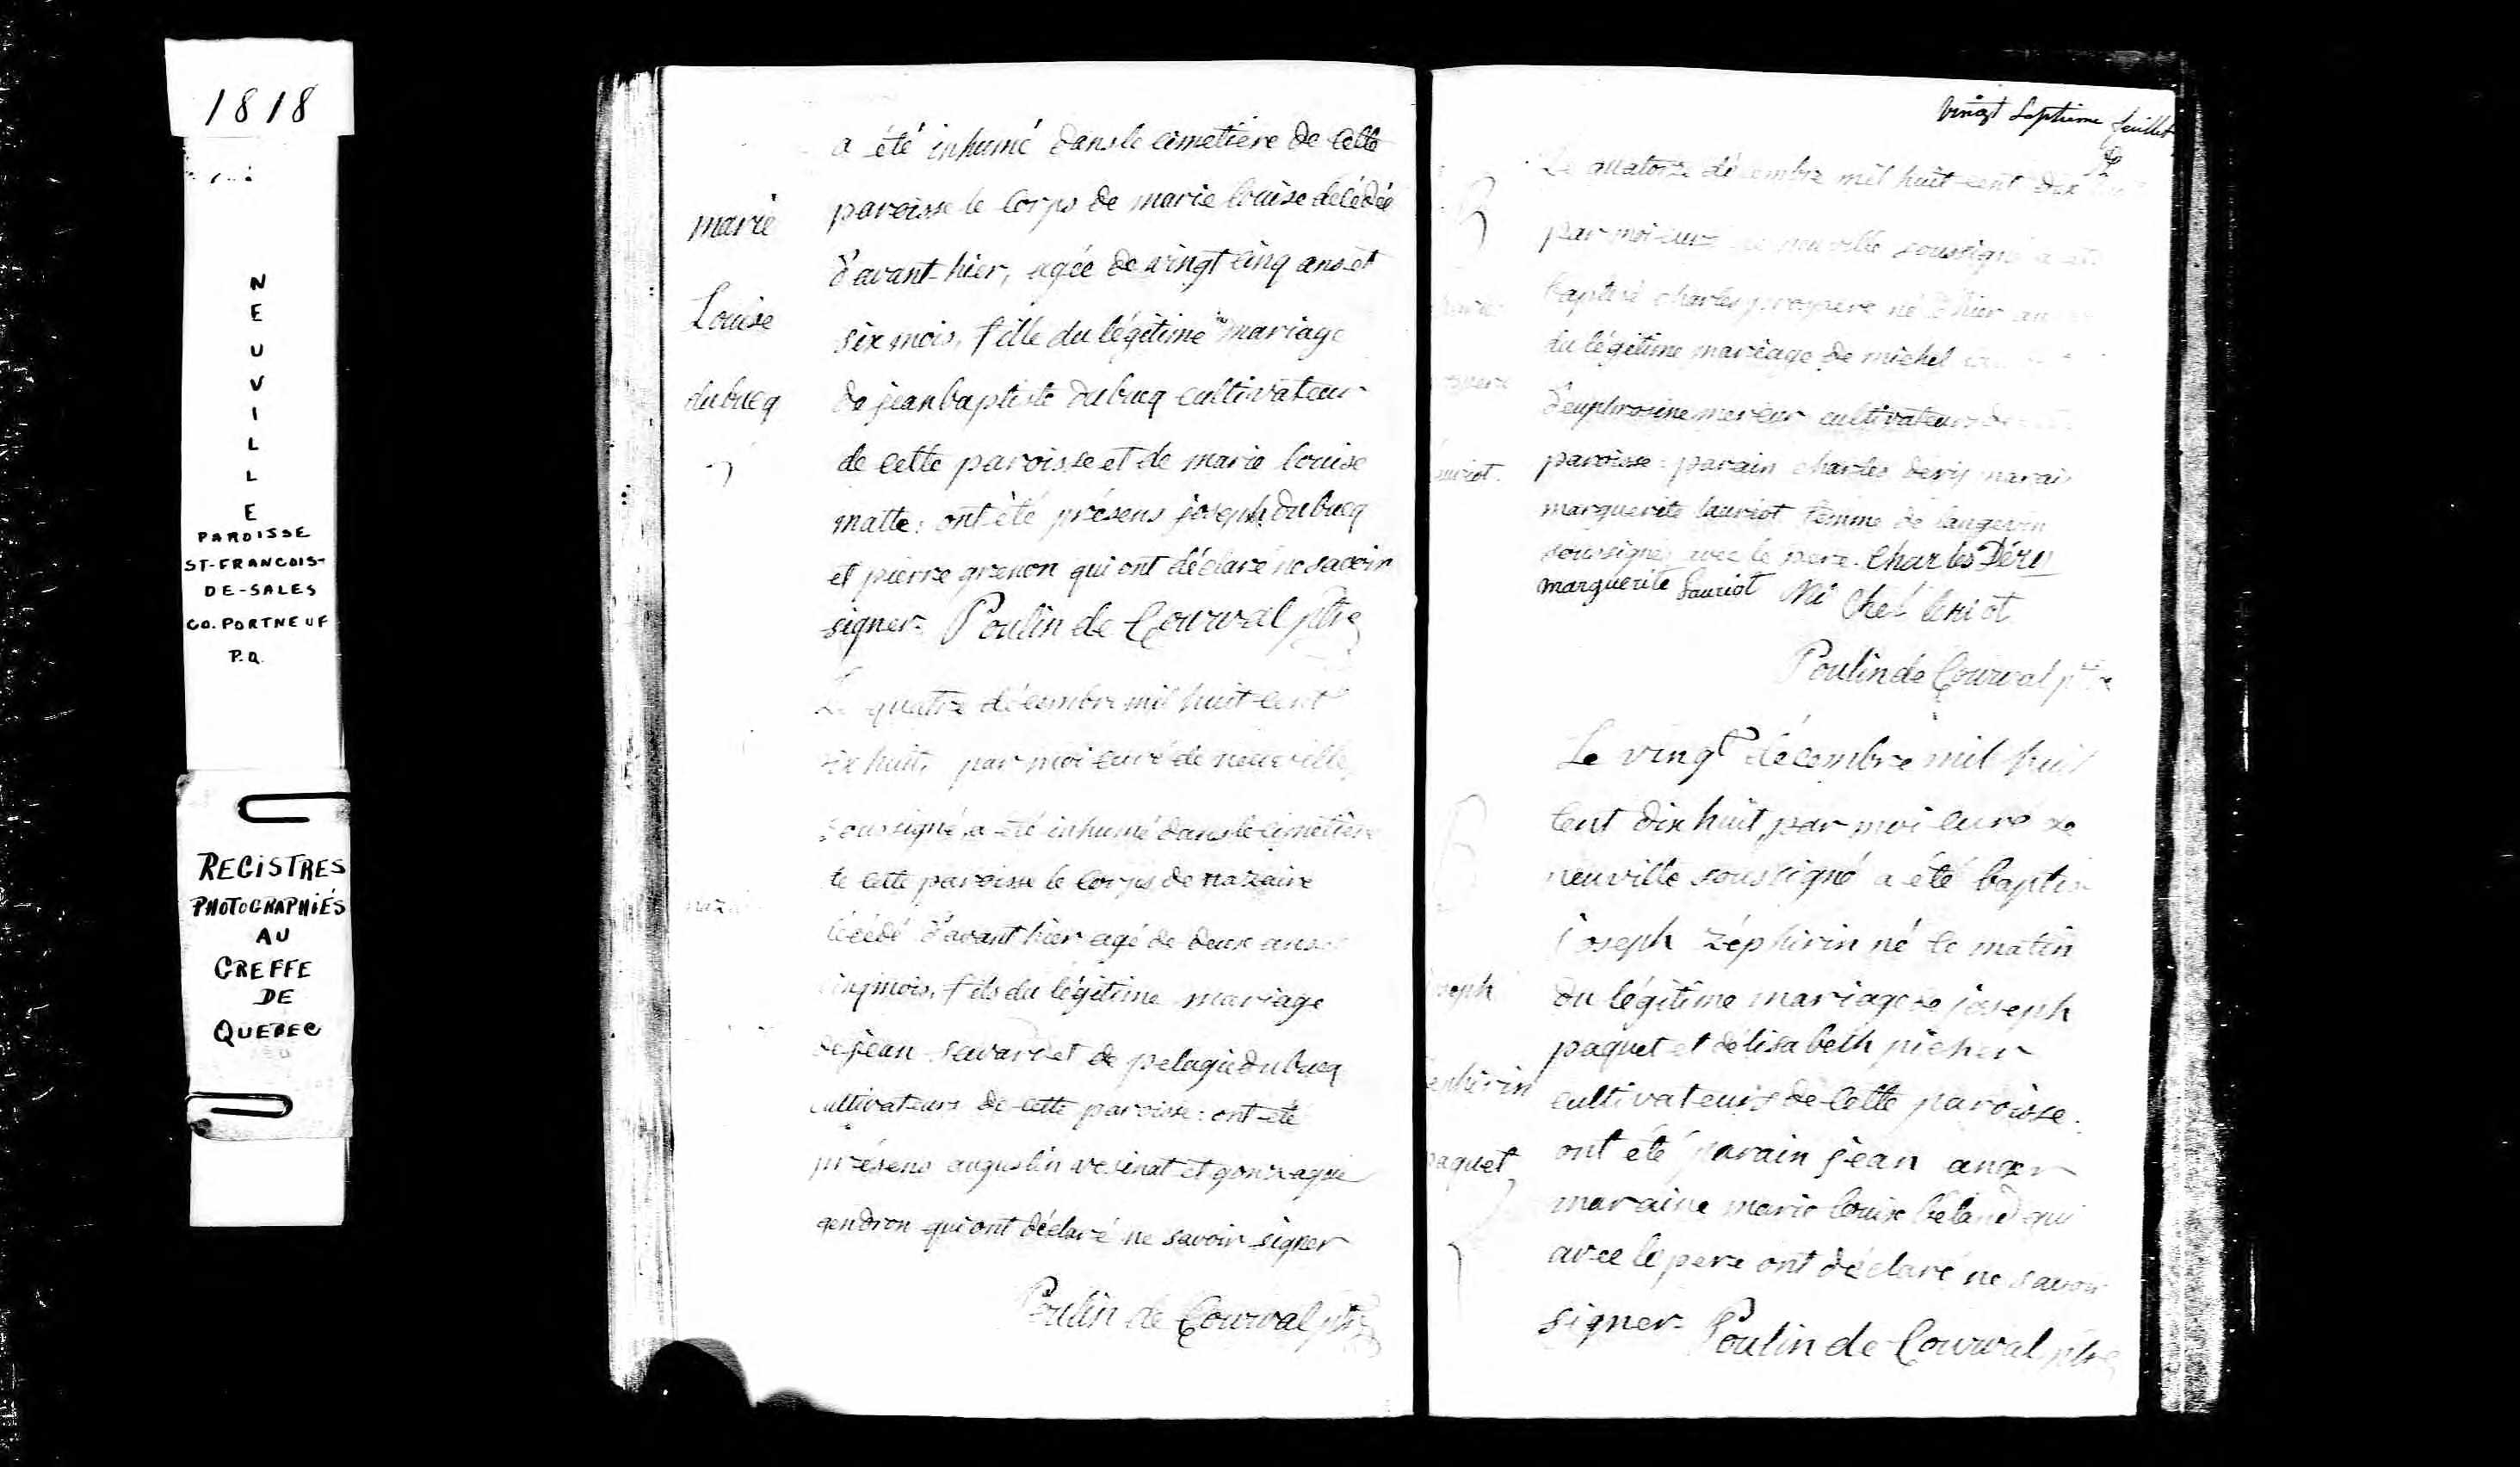 1818
NEUVILLE
PAROISSE
ST-FRANCOIS-
DE-SALES
CO. PORTNEUF
P.Q.
REGISTRES
PHOTOGRAPHIÉS
AU
GREFFE
DE
QUEBEC
marie
Louise
dubucq
a été inhumé dans le cimetiere de cette
paroisse le corps de marie louise décédée
d'avant-hier, agée de vingt cinq ans et
six mois, fille du légitime mariage
de jean baptiste dubucq cultivateur
de cette paroisse et de marie louise
matte: ont été présens joseph dubucq
et pierre grenon qui ont déclaré ne savoir
signer. Poulin de Courval ptre
Le quatre décembre mil huit cent
dix huit, par moi curé de neuville
soussigné, a été inhumé dans le cimetiere
de cette paroisse le corps de nazaire
décédé d'avant hier agé de deux ans
cinq mois, fils du légitime mariage
de jean savari et de pelagie dubucq
cultivateurs de cette paroisse: ont été
présens augustin vesinat et gonzague
gendron qui ont déclaré ne savoir signer
Poulin de Courval ptre
vingt Septieme feuillet
B
Le quatorze décembre mil huit cent dix huit
par moi curé de neuville soussigné a été
baptisé charles prospere né d'hier au
du légitime mariage de michel
d'euphrosine mercur cultivateurs de
paroisse: parain charles dery marai
marguerite lauriot femme de langevin
soussignés avec le pere. Charles Déry
marguerite Lauriot Mi Chel leriot
Poulin de Courval ptre
B
joseph
zephirin
paquet
Le vingt décembre mil huit
cent dix huit par moi curé de
neuville soussigné a été baptisé
joseph zéphirin né ce matin
du légitime mariage de joseph
paquet et d'élisabeth picher
cultivateurs de cette paroisse.
ont été parain jean anger
maraine marie louise béland qui
avec le pere ont déclaré ne savoir
signer. Poulin de Courval ptre